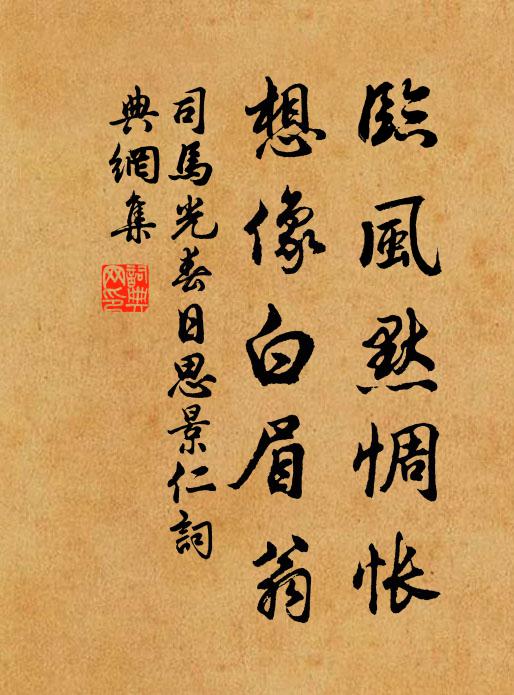 臨風黙惆悵
想像白眉翁
司馬光春日思景仁詞
典網集
詞典網印